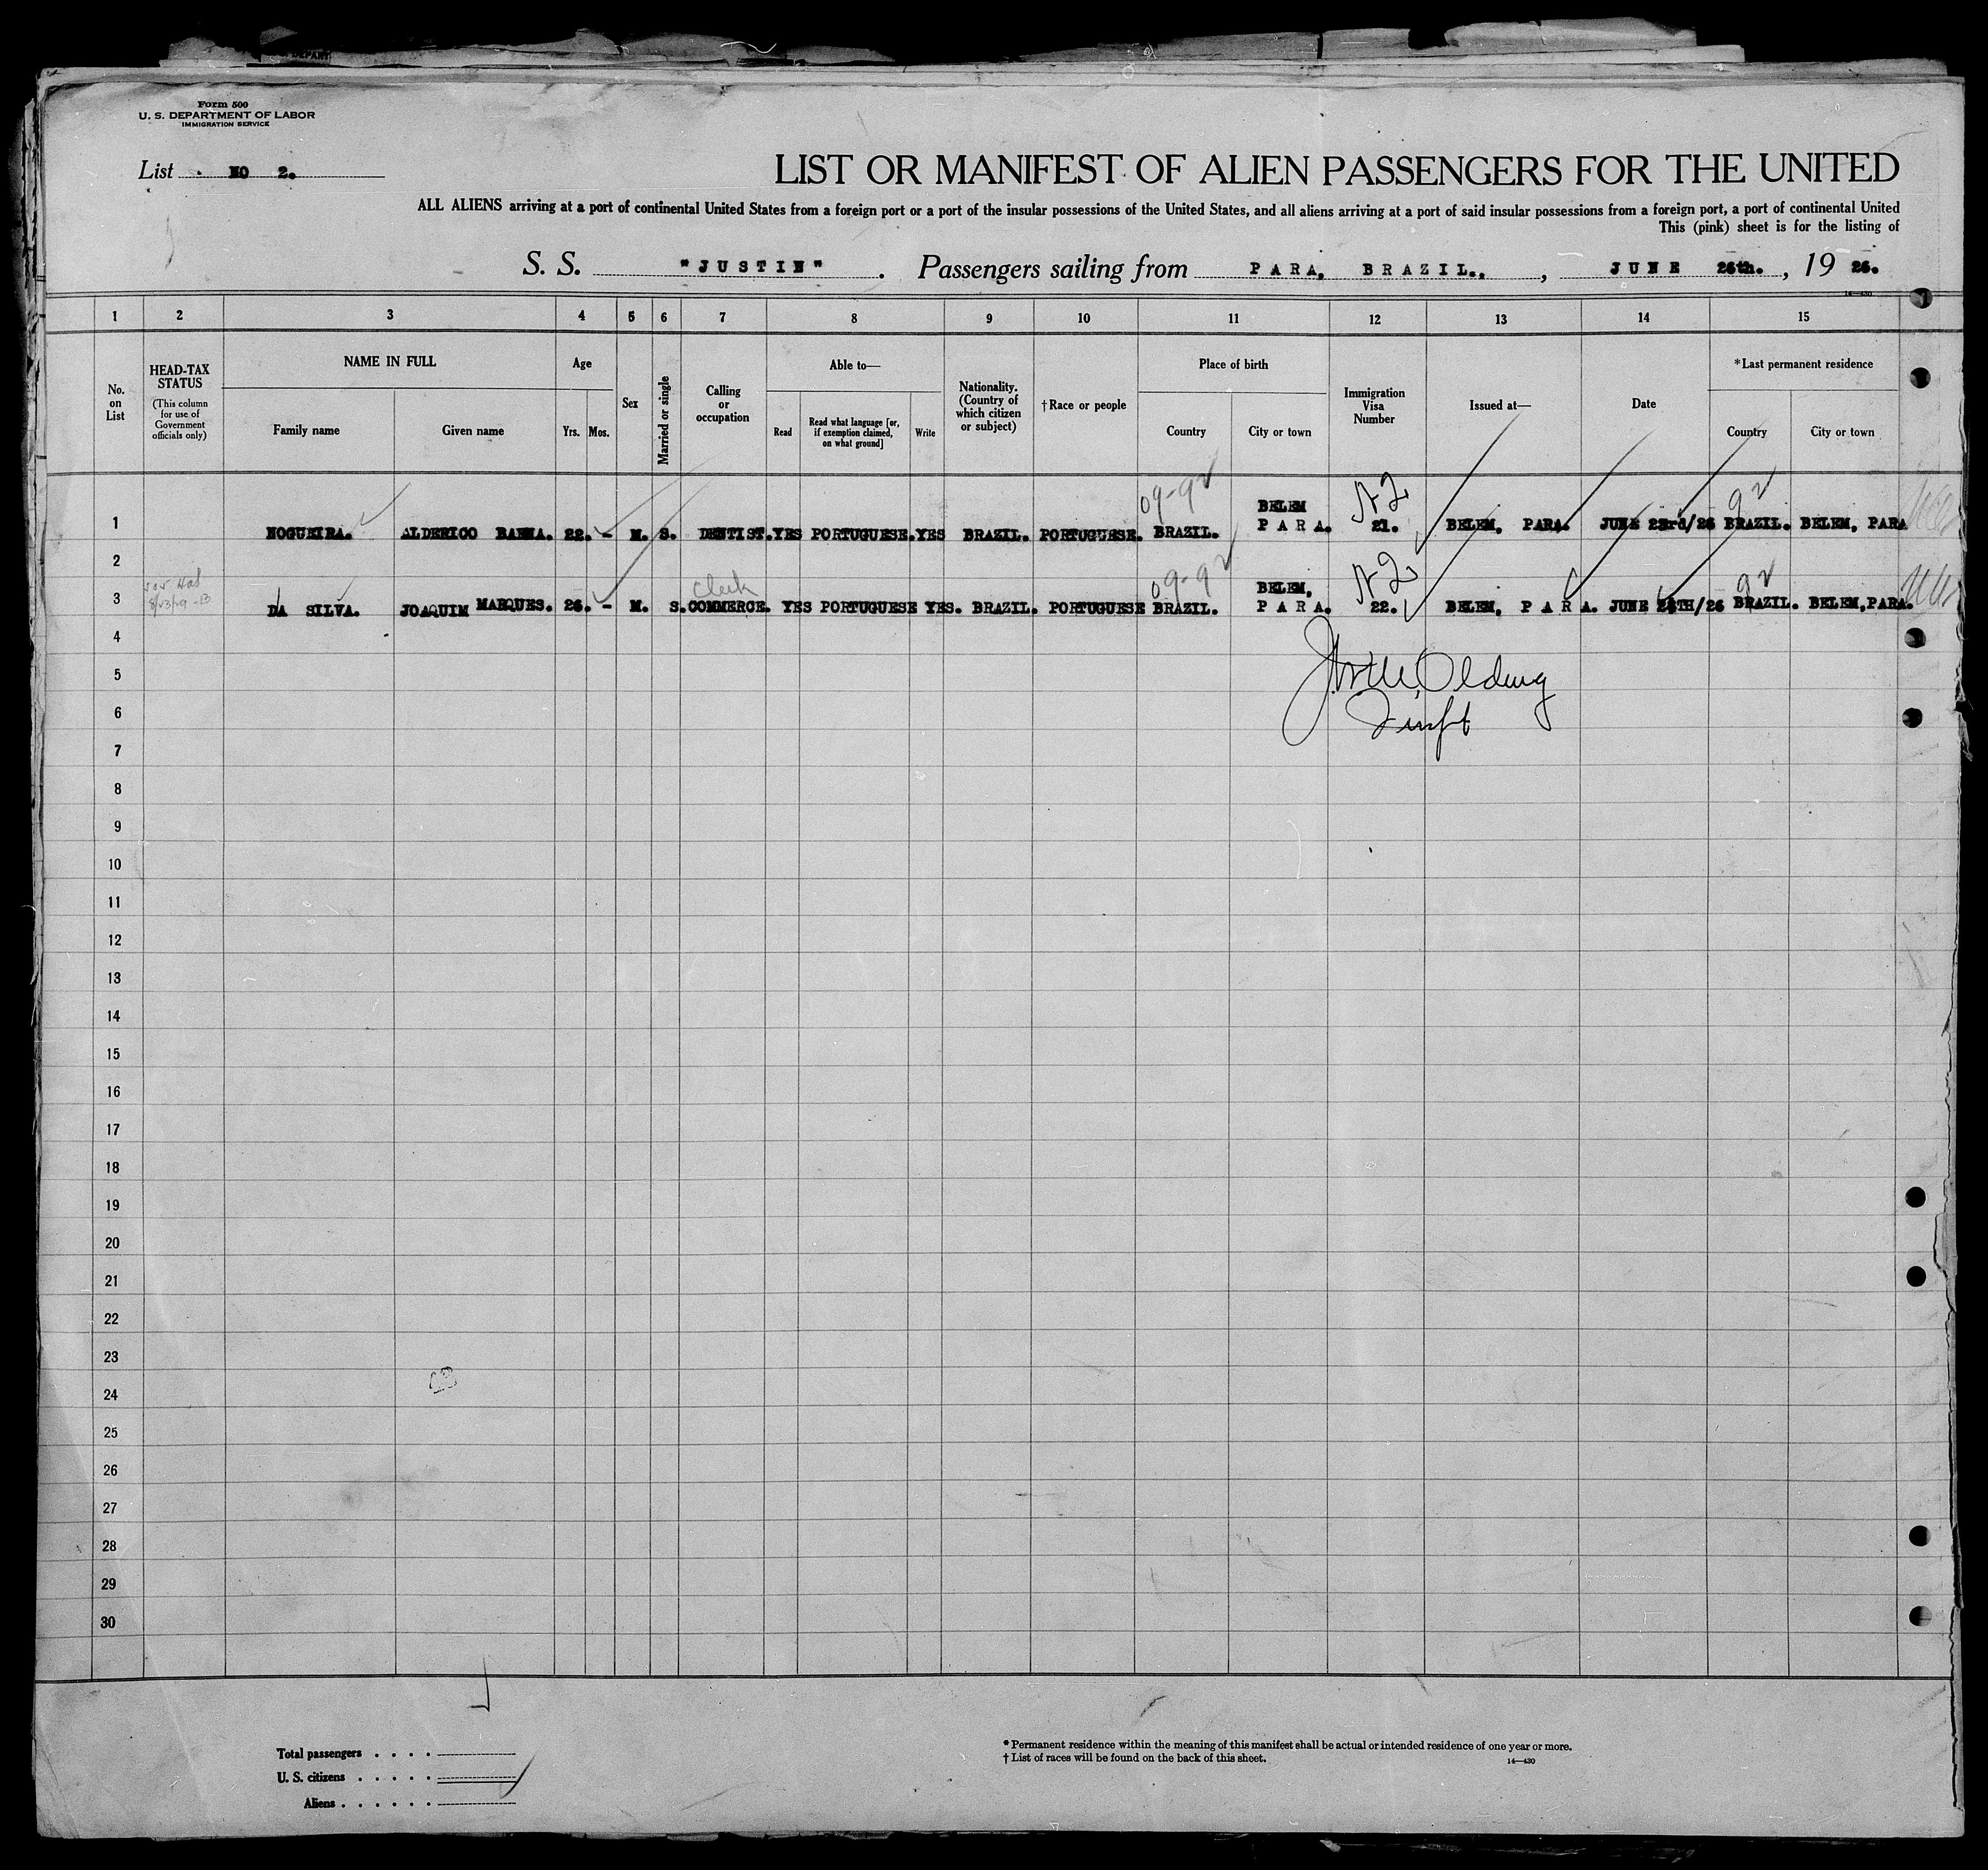 Form 500
U. S. DEPARTMENT OF LABOR
IMMIGRATION SERVICE
List NO 2.
LIST OR MANIFEST OF ALIEN PASSENGERS FOR THE UNITED
ALL ALIENS arriving at a port of continental United States from a foreign port or a port of the insular possessions of the United States, and all aliens arriving at a port of said insular possessions from a foreign port, a port of continental United
This (pink) sheet is for the listing of
S. S. "JUSTIN" . Passengers sailing from PARA, BRAZIL., , JUNE 26th. , 19 26.
14—430
1 2 3 4 5 6 7 8 9 10 11 12 13 14 15
No. on List
HEAD-TAX STATUS
(This column for use of Government officials only)
NAME IN FULL
Family name
Given name
Age
Yrs.
Mos.
Sex
Married or single
Calling or occupation
Able to—
Read
Read what language [or, if exemption claimed, on what ground]
Write
Nationality. (Country of which citizen or subject)
†Race or people
Place of birth
Country
City or town
Immigration Visa Number
Issued at—
Date
*Last permanent residence
Country
City or town
09-92 BELEM 92
1 NOGUEIRA. ALDERICO BAENA. 22. - M. S. DENTIST. YES PORTUGUESE. YES BRAZIL. PORTUGUESE. BRAZIL. PARA. 21. BELEM, PARA. JUNE 23rd/26 BRAZIL. BELEM, PARA
2
Clerk 09-92 BELEM, 92
3 DA SILVA. JOAQUIM MARQUES. 26. - M. S. COMMERCE. YES PORTUGUESE YES. BRAZIL. PORTUGUESE BRAZIL. PARA. 22. BELEM, PARA. JUNE /26 BRAZIL. BELEM, PARA.
4
5
6
7
8
9
10
11
12
13
14
15
16
17
18
19
20
21
22
23
24
25
26
27
28
29
30
Total passengers . . . .
U. S. citizens . . . . .
Aliens . . . . . .
* Permanent residence within the meaning of this manifest shall be actual or intended residence of one year or more.
† List of races will be found on the back of this sheet.
14—430